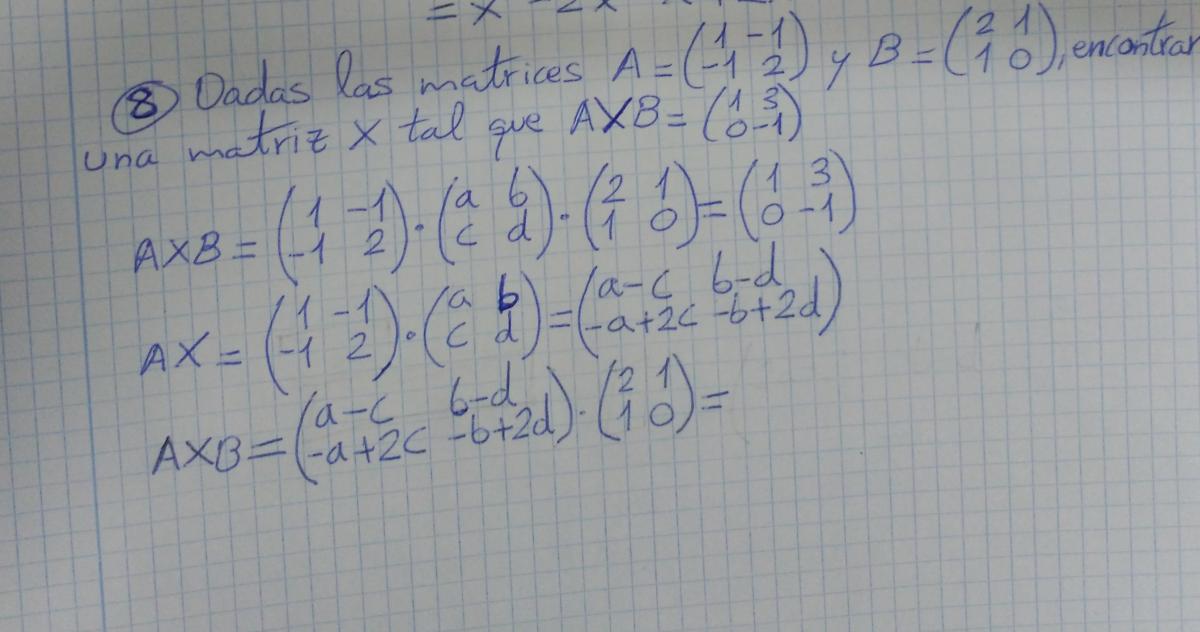 = x -2x
⑧ Dadas las matrices A = (1 -1 / -1 2) y B = (2 1 / 1 0), encontrar
una matriz X tal que AXB = (1 3 / 0 -1)
AXB = (1 -1 / -1 2) · (a b / c d) · (2 1 / 1 0) = (1 3 / 0 -1)
AX = (1 -1 / -1 2) · (a b / c d) = (a-c b-d / -a+2c -b+2d)
AXB = (a-c b-d / -a+2c -b+2d) · (2 1 / 1 0) =